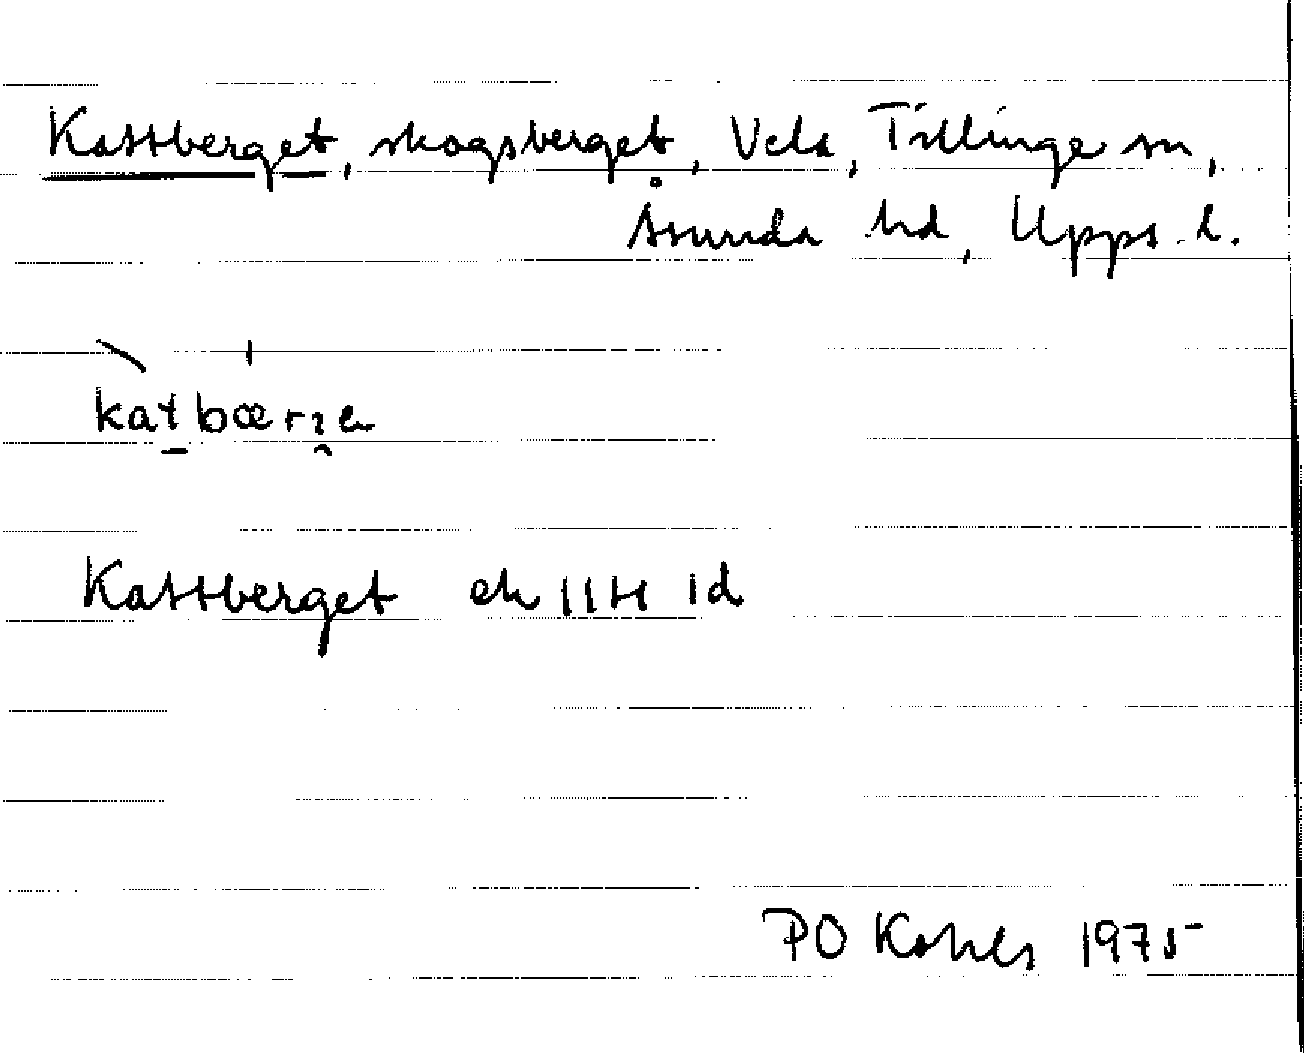 Kattberget, skogsberget, Vela, Tillinge sn,
Åsunda hd, Upps. l.
katbærɜe
Kattberget ek 11H 1d
PO Kohls 1975